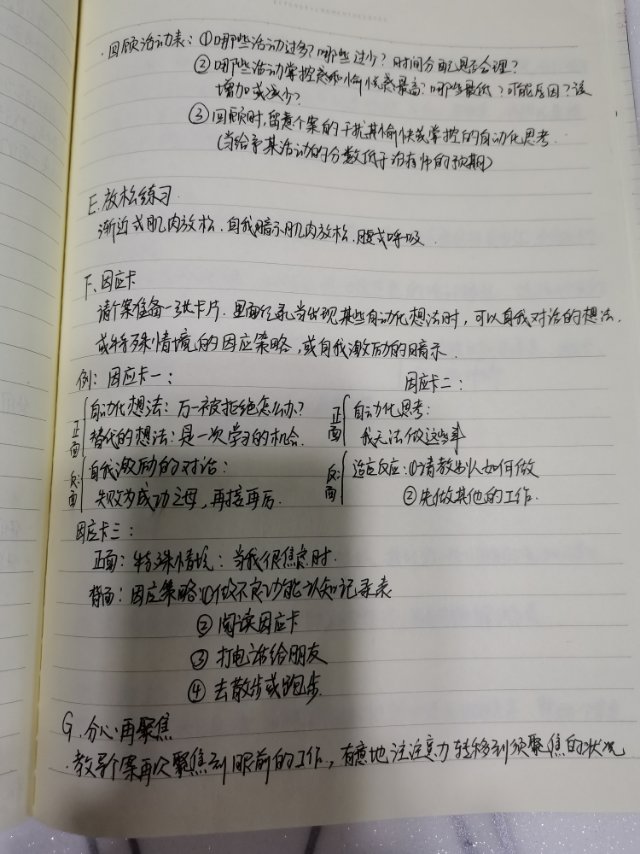 ·回顾活动表：①哪些活动过多？哪些过少？时间分配是否合理？
②哪些活动掌控感和愉快感最高？哪些最低？可能原因？该
增加或减少？
③回顾时，留意个案的干扰其愉快或掌控的自动化思考.
(当给予某活动的分数低于治疗师的预期)
E.放松练习.
渐近式肌肉放松.自我暗示肌肉放松.腹式呼吸.
F.因应卡
请个案准备一张卡片.里面纪录当发现某些自动化想法时，可以自我对话的想法.
或特殊情境的因应策略，或自我激励的暗示.
例：因应卡一： 因应卡二：
正面 自动化想法：万一被拒绝怎么办？ 正面 自动化思考：
替代的想法：是一次学习的机会. 我无法做这些事
反面 自我激励的对话： 反面 适应反应：①请教别人如何做
失败为成功之母，再接再厉. ②先做其他的工作.
因应卡三：
正面：特殊情境：当我很焦虑时.
背面：因应策略：①做不良功能认知记录表
②阅读因应卡
③打电话给朋友
④去散步或跑步.
G.分心再聚焦
·教导个案再次聚焦到眼前的工作，有意地注注意力转移到须聚焦的状况